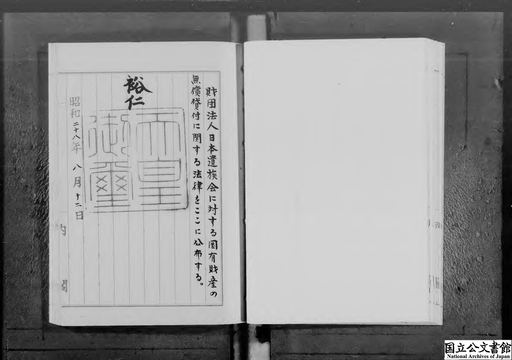 財団法人日本遺族会に対する国有財産の
無償貸付に関する法律をここに公布する。
裕仁
天皇
御璽
昭和二十八年八月十二日
内閣
国立公文書館
National Archives of Japan